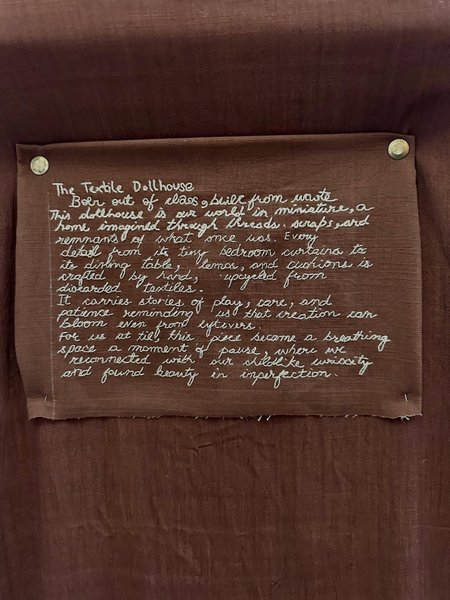 The Textile Dollhouse
Born out of class, built from waste
This dollhouse is our world in miniature, a
home imagined through threads. scraps, and
remnants of what once was. Every
detail from its tiny bedroom curtains to
its dining table, lamps, and cushions is
crafted by hand, upcycled from
discarded textiles.
It carries stories of play, care, and
patience reminding us that creation can
bloom even from leftovers.
For us at till, this piece became a breathing
space a moment of pause, where we
reconnected with our childlike curiosity
and found beauty in inperfection.